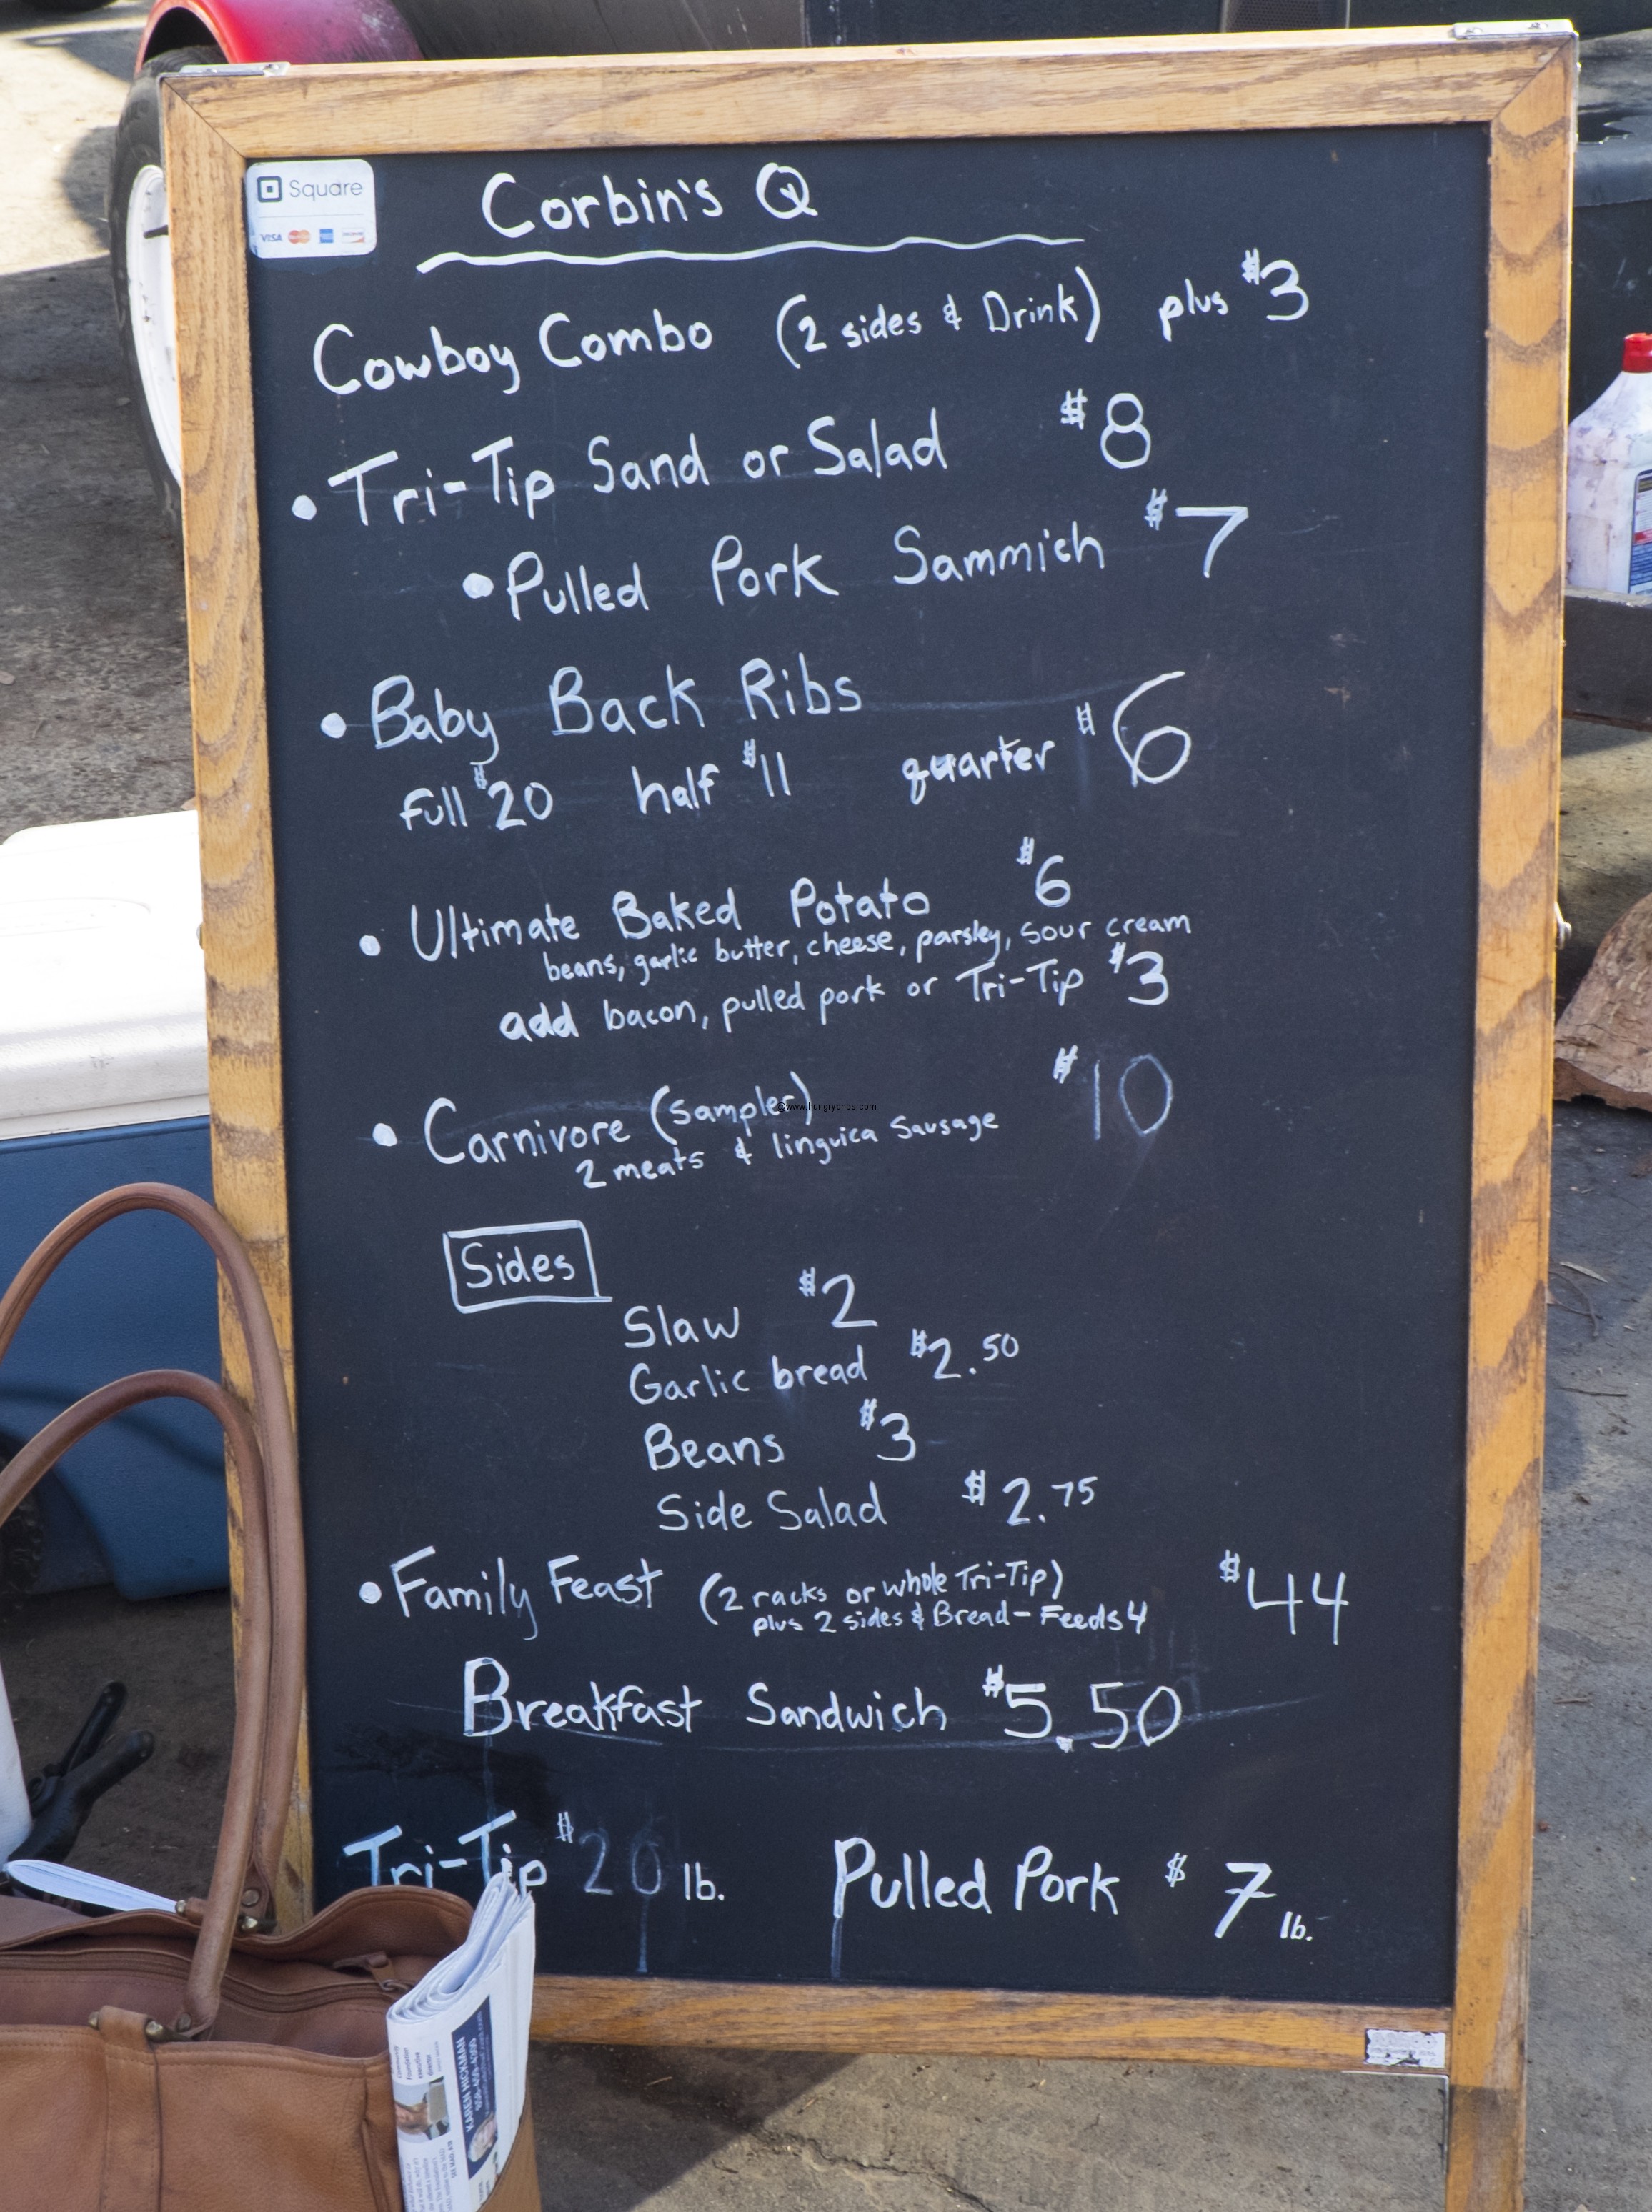 Square
VISA
Corbin's Q
Cowboy Combo (2 sides & Drink) plus $3
• Tri-Tip Sand or Salad $8
• Pulled Pork Sammich $7
• Baby Back Ribs
full $20 half $11 quarter $6
• Ultimate Baked Potato $6
beans, garlic butter, cheese, parsley, sour cream
add bacon, pulled pork or Tri-Tip $3
• Carnivore (Sampler) $10
@www.hungryones.com
2 meats & linguica Sausage
Sides
Slaw $2
Garlic bread $2.50
Beans $3
Side Salad $2.75
• Family Feast (2 racks or whole Tri-Tip) $44
plus 2 sides & Bread - Feeds 4
Breakfast Sandwich $5.50
Tri-Tip $20 lb. Pulled Pork $7 lb.
KAREN HICKMAN